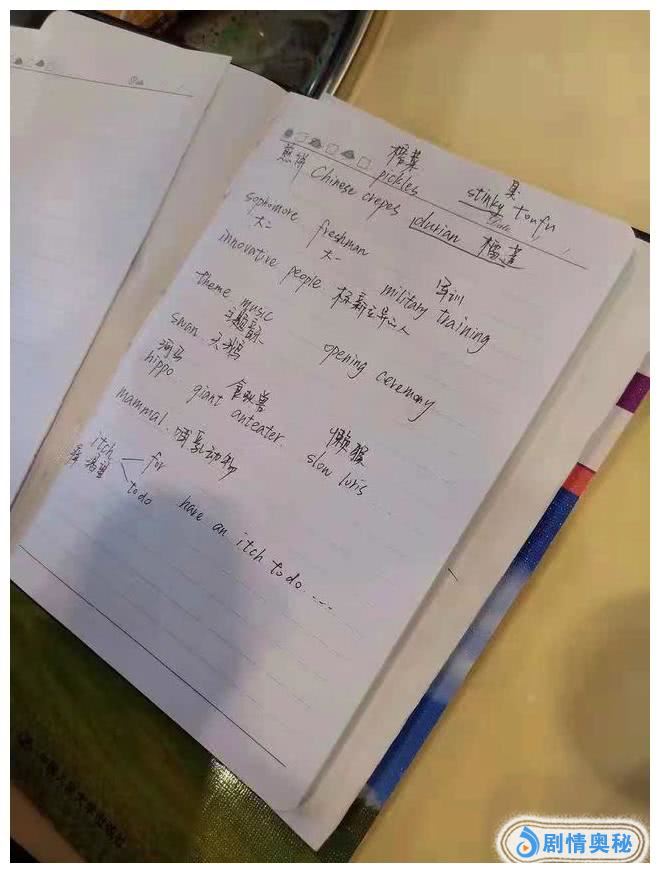 榨菜 臭
煎饼 pickles stinky tonfu
Chinese crepes durian 榴莲
sophomore freshman
大二 大一 军训
innovative people 标新立异之人 military training
theme music
主题歌 opening ceremony
swan 天鹅
河马 食蚁兽 懒猴
hippo giant anteater. slow loris
mammal. 哺乳动物
itch for
痒 希望 to do have an itch to do.....
中国人民大学出版社
剧情奥秘